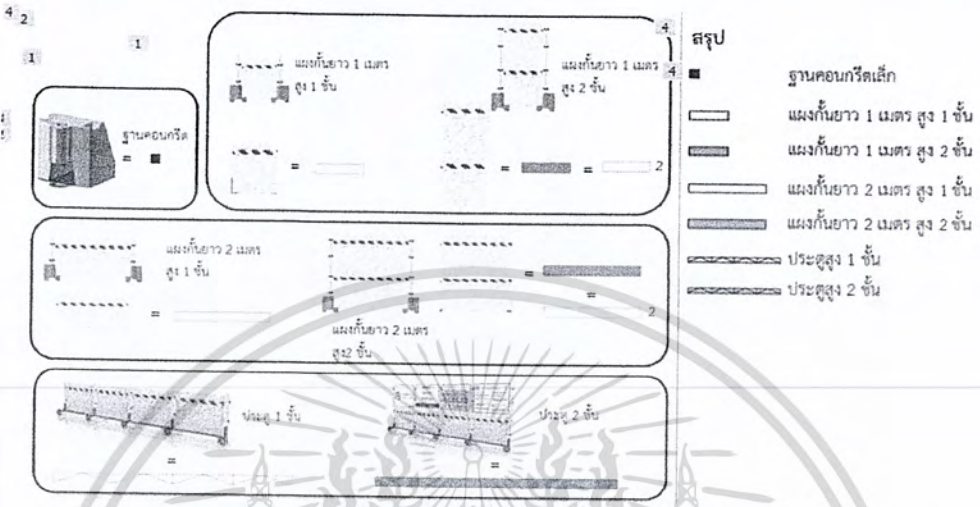 4
2
1
1
ฐานคอนกรีต
=
แผงกั้นยาว 1 เมตร
สูง 1 ชั้น
=
แผงกั้นยาว 1 เมตร
สูง 2 ชั้น
4
4
= = 2
แผงกั้นยาว 2 เมตร
สูง 1 ชั้น
=
แผงกั้นยาว 2 เมตร
สูง2 ชั้น
=
=
2
ประตู 1 ชั้น
=
ประตู 2 ชั้น
=
สรุป
ฐานคอนกรีตเล็ก
แผงกั้นยาว 1 เมตร สูง 1 ชั้น
แผงกั้นยาว 1 เมตร สูง 2 ชั้น
แผงกั้นยาว 2 เมตร สูง 1 ชั้น
แผงกั้นยาว 2 เมตร สูง 2 ชั้น
ประตูสูง 1 ชั้น
ประตูสูง 2 ชั้น